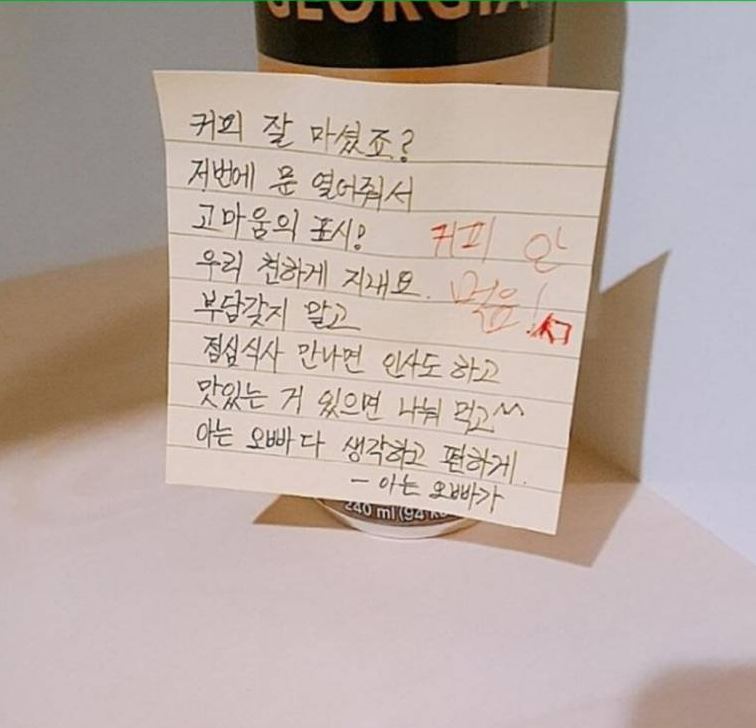 GEORGIA
커피 잘 마셨죠?
저번에 문 열어줘서
고마움의 표시!
커피 안
우리 친하게 지내요.
먹음!
부담갖지 말고
점심식사 만나면 인사도 하고
맛있는 거 있으면 나눠 먹고^^
아는 오빠다 생각하고 편하게.
- 아는 오빠가
240 ml (94